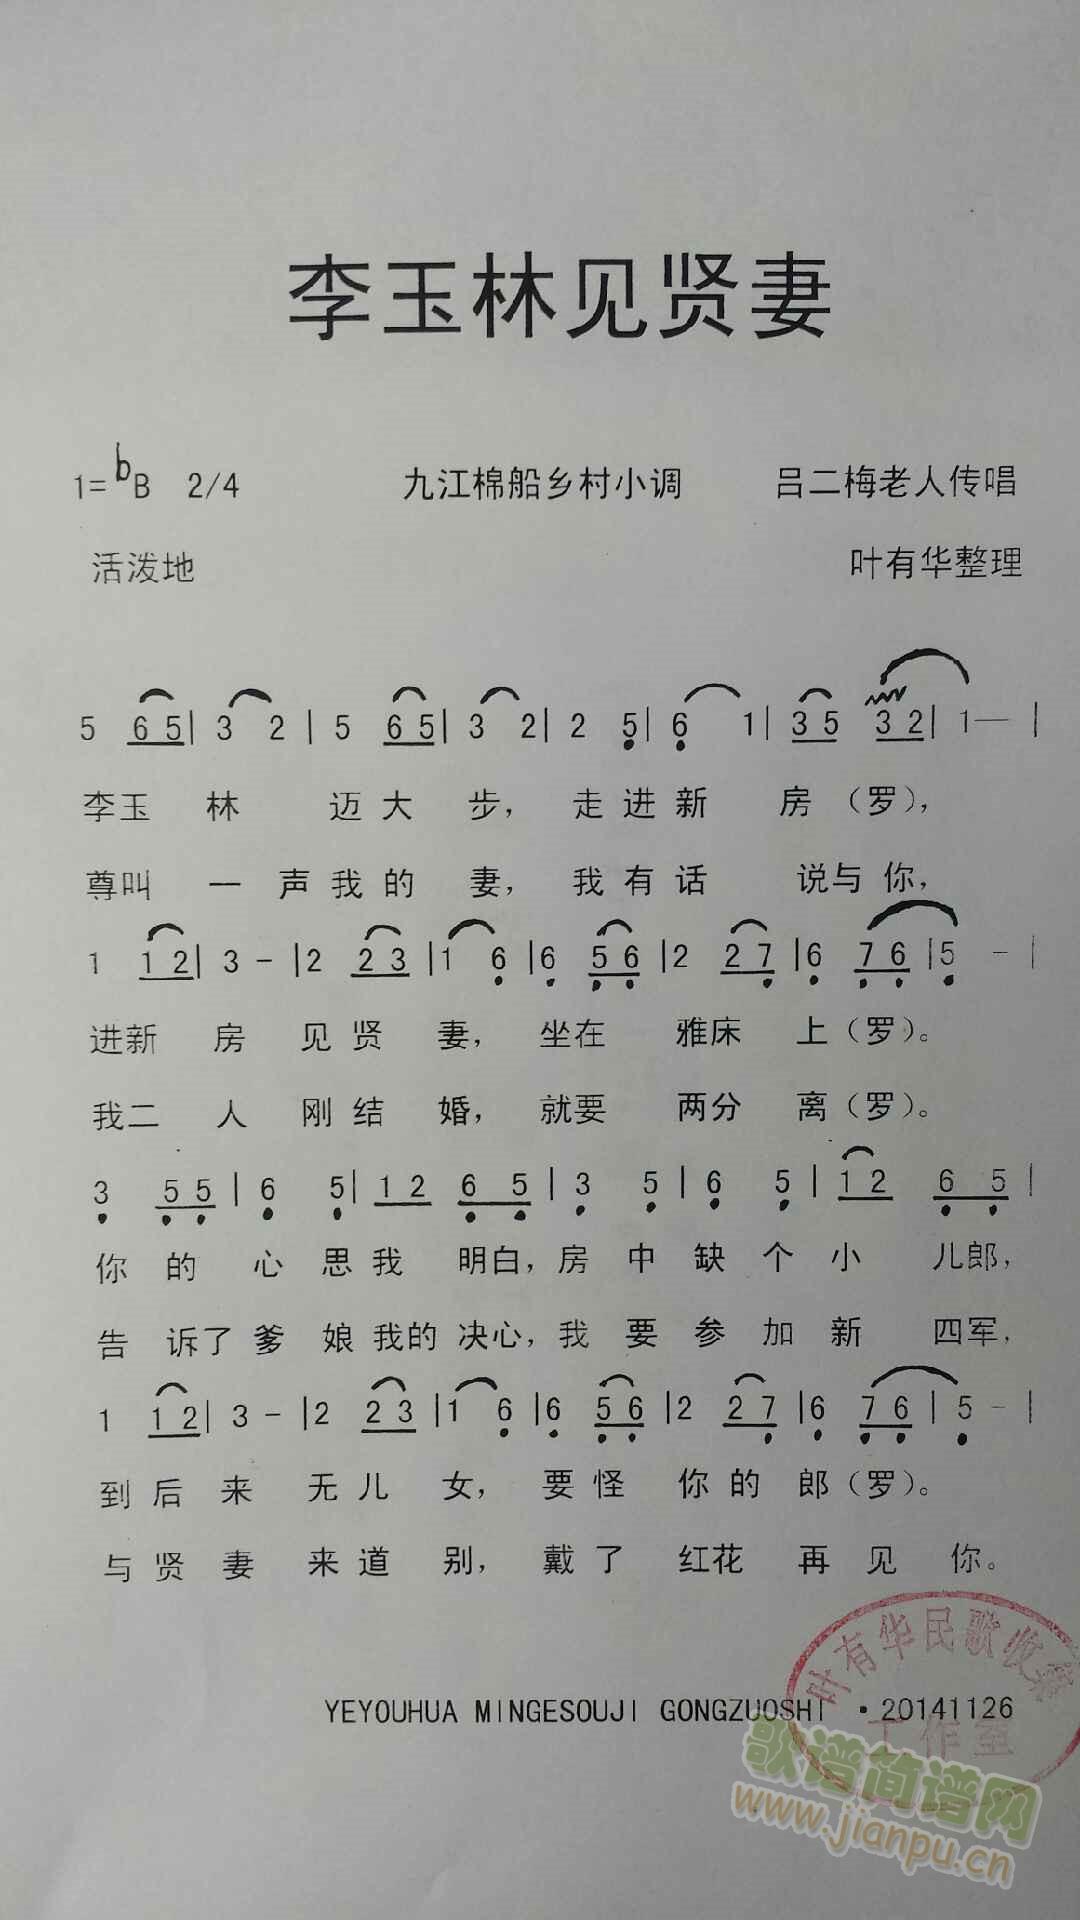 李玉林见贤妻
1=bB 2/4 九江棉船乡村小调 吕二梅老人传唱
活泼地 叶有华整理
5 6 5 | 3 2 | 5 6 5 | 3 2 | 2 5 | 6 1 | 3 5 3 2 | 1— |
李玉 林 迈大 步，走进新 房（罗），
尊叫 一 声我的 妻，我有话 说与你，
1 1 2 | 3 - | 2 2 3 | 1 6 | 6 5 6 | 2 2 7 | 6 7 6 | 5 - |
进新 房 见贤 妻，坐在 雅床 上（罗）。
我二 人 刚结 婚，就要 两分 离（罗）。
3 5 5 | 6 5 | 1 2 6 5 | 3 5 | 6 5 | 1 2 6 5 |
你 的 心 思我 明白，房 中 缺 个 小 儿郎，
告 诉了爹 娘我的决心，我 要 参 加 新 四军，
1 1 2 | 3 - | 2 2 3 | 1 6 | 6 5 6 | 2 2 7 | 6 7 6 | 5 - |
到后 来 无儿 女，要怪 你的 郎（罗）。
与贤 妻 来道 别，戴了 红花 再见 你。
叶有华民歌收集
YEYOUHUA MINGESOUJI GONGZUOSHI ·20141126
工作室
歌谱简谱网
www.jianpu.cn